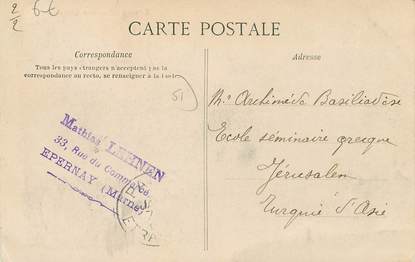 6€
2/2
CARTE POSTALE
Correspondance
Tous les pays étrangers n'acceptent pas la
correspondance au recto, se renseigner à la Poste
51
Mathias LEHNEN
33, Rue du Commerce
EPERNAY (Marne)
Adresse
Mr Archimède Basiliadèse
Ecole séminaire grecque
Jérusalem
Turquie d'Asie